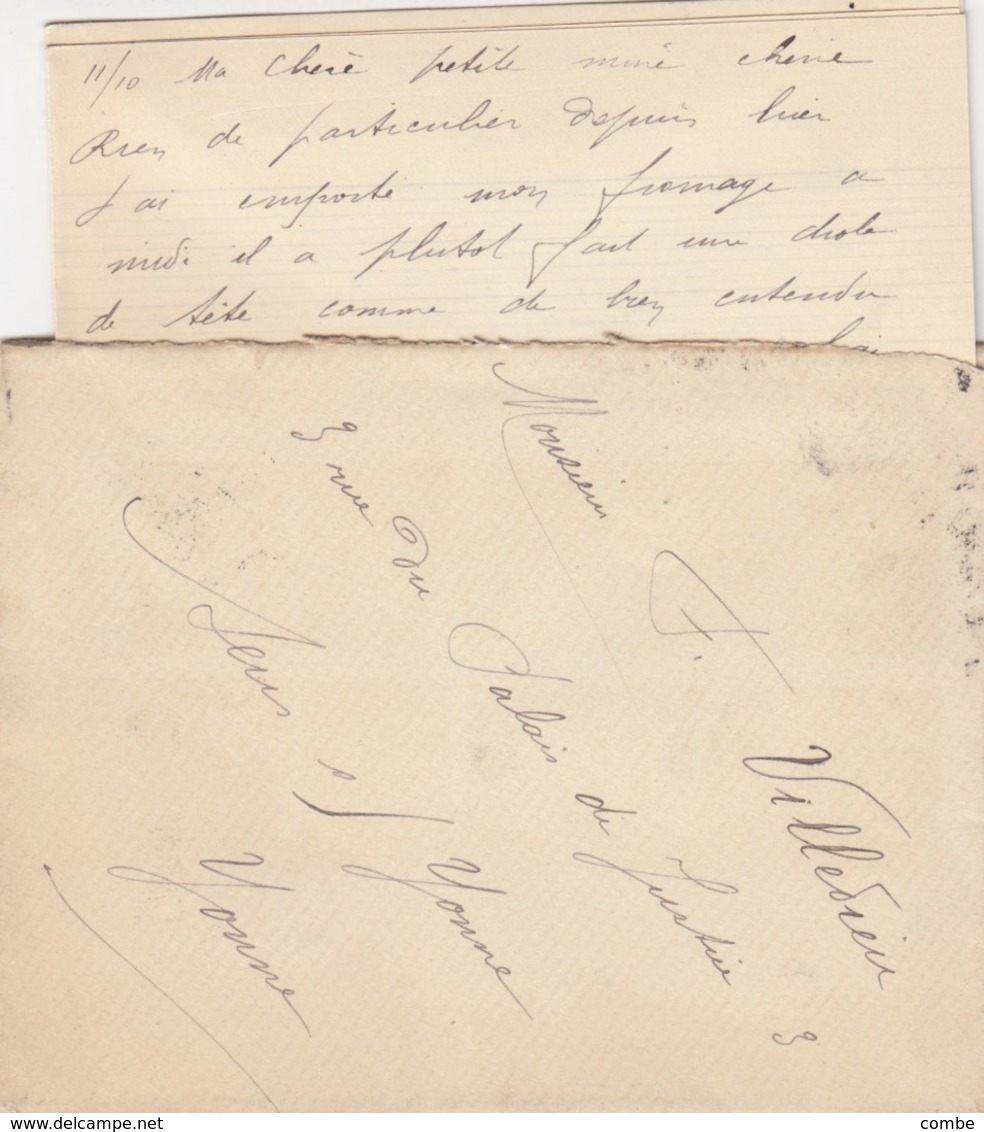 11/10 Ma Cherè petite miné chérie
Rien de particulier depuis hier
J'ai emporté mon fromage a
midi il a plutot fait une drole
de tête comme de bien entendu
Monsieur F. Villedieu
3 rue du Palais de Justice
Sens s/ Yonne
Yonne
9
delcampe.net
combe